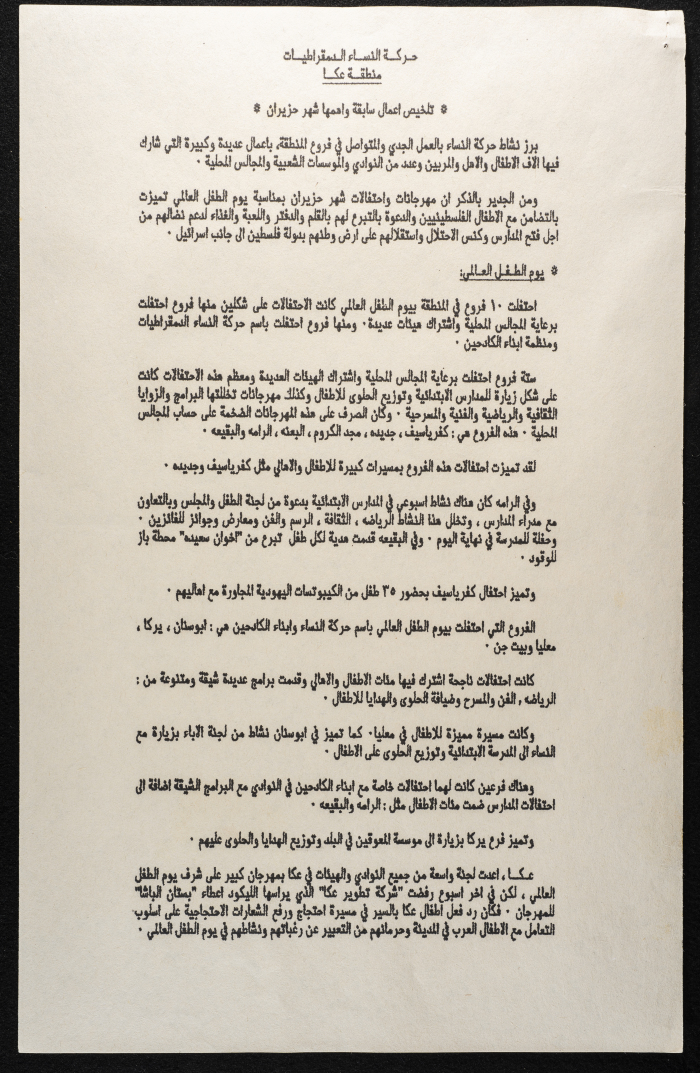 حركة النساء الدمقراطيات
منطقة عكا
* تلخيص اعمال سابقة واهمها شهر حزيران *
برز نشاط حركة النساء بالعمل الجدي والمتواصل في فروع المنطقة، باعمال عديدة وكبيرة التي شارك
فيها الاف الاطفال والاهل والمربين وعدد من النوادي والموسسات الشعبية والمجالس المحلية ٠
ومن الجدير بالذكر ان مهرجانات واحتفالات شهر حزيران بمناسبة يوم الطفل العالمي تميزت
بالتضامن مع الاطفال الفلسطينيين والدعوة بالتبرع لهم بالقلم والدفتر واللعبة والغذاء لدعم نضالهم من
اجل فتح المدارس وكنس الاحتلال واستقلالهم على ارض وطنهم بدولة فلسطين الى جانب اسرائيل ٠
* يوم الطفل العالمي:
احتفلت ١٠ فروع في المنطقة بيوم الطفل العالمي كانت الاحتفالات على شكلين منها فروع احتفلت
برعاية المجالس المحلية واشتراك هيئات عديدة٠ ومنها فروع احتفلت باسم حركة النساء الدمقراطيات
ومنظمة ابناء الكادحين ٠
ستة فروع احتفلت برعاية المجالس المحلية واشتراك الهيئات العديدة ومعظم هذه الاحتفالات كانت
على شكل زيارة للمدارس الابتدائية وتوزيع الحلوى للاطفال وكذلك مهرجانات تخللتها البرامج والزوايا
الثقافية والرياضية والفنية والمسرحية ٠ وكان الصرف على هذه المهرجانات الضخمة على حساب المجالس
المحلية ٠ هذه الفروع هي : كفرياسيف ، جديده ، مجد الكروم ، البعنه ، الرامه والبقيعه ٠
لقد تميزت احتفالات هذه الفروع بمسيرات كبيرة للاطفال والاهالي مثل كفرياسيف وجديده ٠
وفي الرامه كان هناك نشاط اسبوعي في المدارس الابتدائية بدعوة من لجنة الطفل والمجلس وبالتعاون
مع مدراء المدارس ، وتخلل هذا النشاط الرياضه ، الثقافة ، الرسم والفن ومعارض وجوائز للفائزين ٠
وحفلة للمدرسة في نهاية اليوم ٠ وفي البقيعه قدمت هدية لكل طفل تبرع من "اخوان سعيده" محطة باز
للوقود ٠
وتميز احتفال كفرياسيف بحضور ٣٥ طفل من الكيبوتسات اليهودية المجاورة مع اهاليهم ٠
الفروع التي احتفلت بيوم الطفل العالمي باسم حركة النساء وابناء الكادحين هي : ابوسنان ، يركا ،
معليا وبيت جن ٠
كانت احتفالات ناجحة اشترك فيها مئات الاطفال والاهالي وقدمت برامج عديدة شيقة ومتنوعة من :
الرياضه ، الفن والمسرح وضيافة الحلوى والهدايا للاطفال ٠
وكانت مسيرة مميزة للاطفال في معليا٠ كما تميز في ابوسنان نشاط من لجنة الاباء بزيارة مع
النساء الى المدرسة الابتدائية وتوزيع الحلوى على الاطفال ٠
وهناك فرعين كانت لهما احتفالات خاصة مع ابناء الكادحين في النوادي مع البرامج الشيقة اضافة الى
احتفالات المدارس ضمت مئات الاطفال مثل : الرامه والبقيعه ٠
وتميز فرع يركا بزيارة الى موسسة المعوقين في البلد وتوزيع الهدايا والحلوى عليهم ٠
عكا ، اعدت لجنة واسعة من جميع النوادي والهيئات في عكا بمهرجان كبير على شرف يوم الطفل
العالمي ، لكن في اخر اسبوع رفضت "شركة تطوير عكا" الذي يراسها الليكود اعطاء "بستان الباشا"
للمهرجان ٠ فكان رد فعل اطفال عكا بالسير في مسيرة احتجاج ورفع الشعارات الاحتجاجية على اسلوب
التعامل مع الاطفال العرب في المدينة وحرمانهم من التعبير عن رغباتهم ونشاطهم في يوم الطفل العالمي ٠